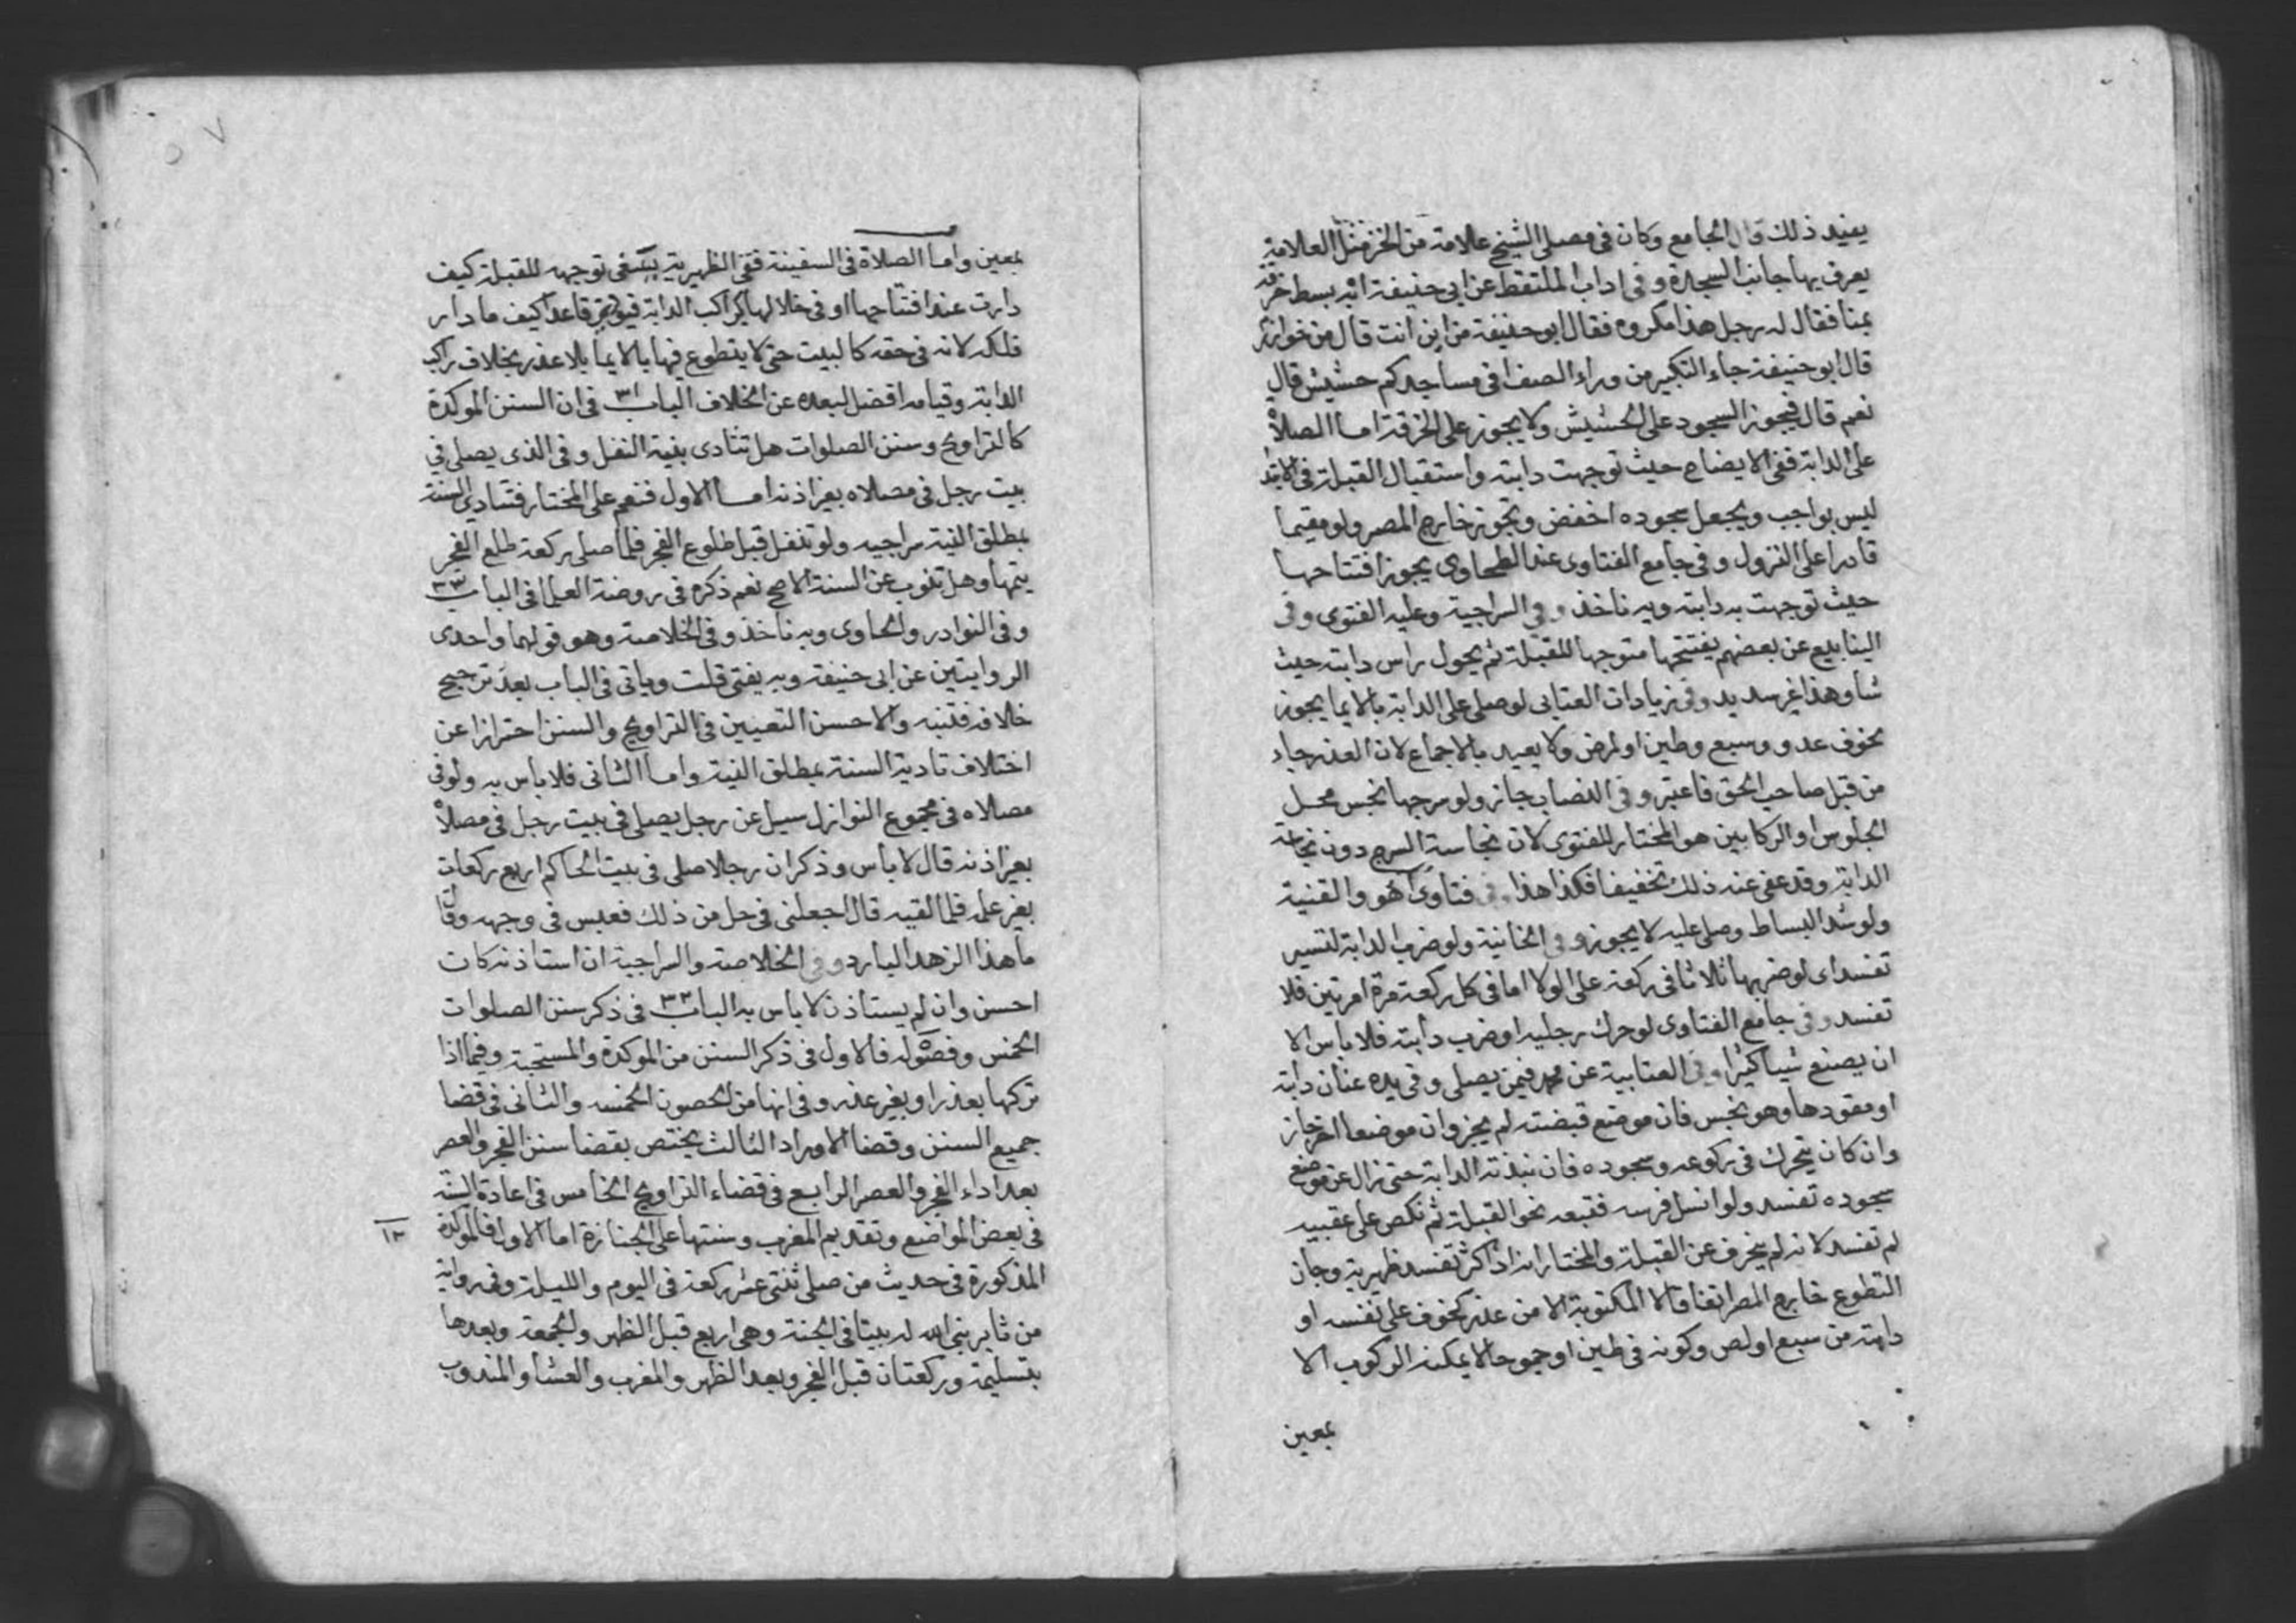 يفيد ذلك قال الجامع وكان في مصلى الشيخ علامة من الخز مثل العلامة
يعرف بها جانب السجدة وفي اداب الملتقط عن ابي حنيفة انه بسط خرقة
بمنا فقال له رجل هذا مكروه فقال ابو حنيفة من اين انت قال من خوارزم
قال ابو حنيفة جاء التكبير من وراء الصف افي مساجدكم حشيش قال
نعم قال فيجوز السجود على الحشيش ولا يجوز على الخرقة اما الصلاة
على الدابة ففي الايضاح حيث توجهت دابته واستقبال القبلة في الابتدا
ليس بواجب ويجعل سجوده اخفض وتجوز خارج المصر ولو مقيما
قادرا على النزول وفي جامع الفتاوى عند الطحاوى يجوز افتتاحها
حيث توجهت به دابته وبه ناخذ وفي السراجية وعليه الفتوى وفي
الينابيع عن بعضهم يفتتحها متوجها للقبلة ثم يحول راس دابته حيث
شا وهذا غير سديد وفي زيادات العتابي لو صلى على الدابة بالايما يجوز
لخوف عدو وسبع وطين او لمرض ولا يعيد بالاجماع لان العذر جاء
من قبل صاحب الحق فاعتبر وفي النصاب جاز ولو سرجها نجس محل
الجلوس او الركابين هو المختار للفتوى لان نجاسة السرج دون نجاسة
الدابة وقد عفى عنه ذلك تخفيفا فكذا هذا وفي فتاوى اهو والقنية
ولو شد البساط وصلى عليه لا يجوز وفي الخانية ولو ضرب الدابة لتسير
تفسد اى لو ضربها ثلاثا في ركعة على الولا اما في كل ركعة مرة او مرتين فلا
تفسد وفي جامع الفتاوى لو حرك رجليه او ضرب دابته فلا باس الا
ان يصنع شيا كثيرا وفي العتابية عن محمد فيمن يصلى وفي يده عنان دابة
او مقودها وهو نجس فان موضع قبضته لم يجز وان موضعا اخر جاز
وان كان يتحرك في ركوعه وسجوده فان نبذته الدابة حتى زال عن موضع
سجوده تفسد ولو انسل فرسه فتبعه نحو القبلة ثم نكص على عقبيه
لم تفسد لانه لم ينحرف عن القبلة والمختار انه اذا كثر تفسد ظهيرية وجاز
التطوع خارج المصر اتفاقا لا المكتوبة الا من عذر كخوف على نفسه او
دابته من سبع او لص وكونه في طين او جموحا لا يمكنه الركوب الا
بمعين
بمعين واما الصلاة في السفينة ففي الظهيرية ينبغي توجهه للقبلة كيف
دارت عند افتتاحها او في خلالها كراكب الدابة قاعدا كيف ما دار
فلكه لانه في حقه كالبيت حتى لا يتطوع فيها بالايما بلا عذر بخلاف راكب
الدابة وقيامه افضل لبعده عن الخلاف الباب ٣١ في ان السنن الموكدة
كالتراويح وسنن الصلوات هل تتادى بنية النفل وفي الذى يصلى في
بيت رجل في مصلاه بغير اذنه اما الاول فنعم على المختار فتتادى السنة
بمطلق النية سراجيه ولو تنفل قبل طلوع الفجر فلما صلى ركعة طلع الفجر
يتمها وهل تنوب عن السنة الاصح نعم ذكره في روضة العلما في الباب ٣٣
وفي النوادر والحاوى وبه ناخذ وفي الخلاصة وهو قولهما واحدى
الروايتين عن ابي حنيفة وبه يفتى قلت وياتى في الباب بعد ترجيح
خلافه فتنبه والاحسن التعيين في التراويح والسنن احترازا عن
اختلاف تادية السنة بمطلق النية واما الثانى فلا باس به ولو في
مصلاه في مجموع النوازل سيل عن رجل يصلى في بيت رجل في مصلاه
بغير اذنه قال لا باس وذكر ان رجلا صلى في بيت الحاكم اربع ركعات
بغير علمه فلما لقيه قال اجعلنى في حل من ذلك فعبس في وجهه وقال
ما هذا الزهد البارد وفي الخلاصة والسراجية ان استاذنه كان
احسن وان لم يستاذن لا باس به الباب ٣٢ في ذكر سنن الصلوات
الخمس وفصوله فالاول في ذكر السنن من الموكدة والمستحبة وفيما اذا
تركها بعذر او بغير عذر وفي انها من الحصون الخمسة والثانى في قضا
جميع السنن وقضا الاوراد الثالث يختص بقضا سنن الفجر والعصر
بعد اداء الفجر والعصر الرابع في قضاء التراويح الخامس في اعادة السنة
في بعض المواضع وتقديم المغرب وسنتها على الجنازة اما الاول فالموكدة
١٢
المذكورة في حديث من صلى ثنتى عشر ركعة في اليوم والليلة وفي رواية
من ثابر بنى الله له بيتا في الجنة وهي اربع قبل الظهر والجمعة وبعدها
بتسليمة وركعتان قبل الفجر وبعد الظهر والمغرب والعشا والمندوب